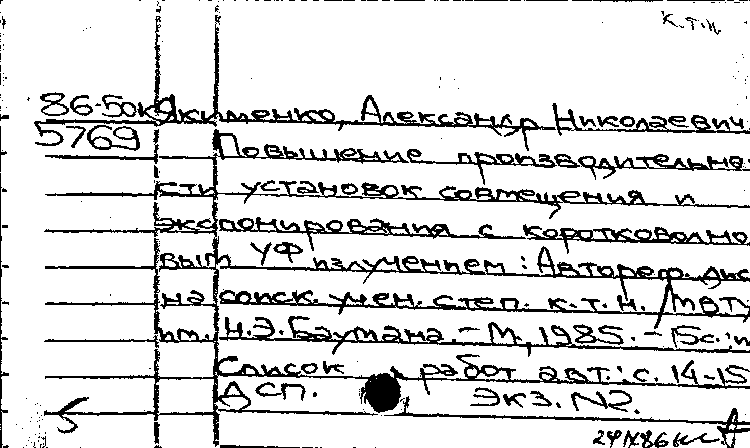 К.Т.Н.
86-50к Якименко, Александр Николаевич
5769 Повышение производительно-
сти установок совмещения и
экспонирования с коротковолно-
вым УФ излучением: Автореф. дис
на соиск. учен. степ. к.т.н. /МВТУ
им. Н.Э. Баумана. - М., 1985. - 15с.:
Список работ авт.: с. 14-15
ДСП. Экз. №2.